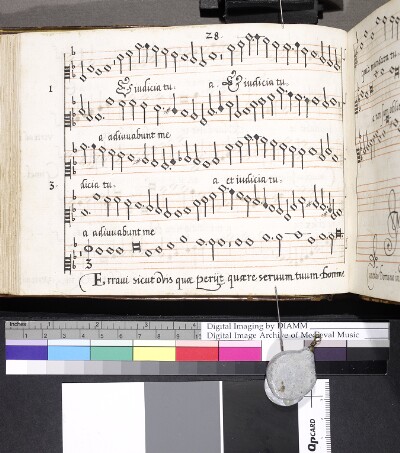 28.
1 & iudicia tu. a. & iudicia tu.
a adiuuabunt me
3. dicia tu. a et iudicia tu.
a adiuuabunt me
3
Erraui sicut ouis quæ perijt quære seruum tuum
inches 1 2
Digital Imaging by DIAMM
Digital Image Archive of Medieval Music
CARD